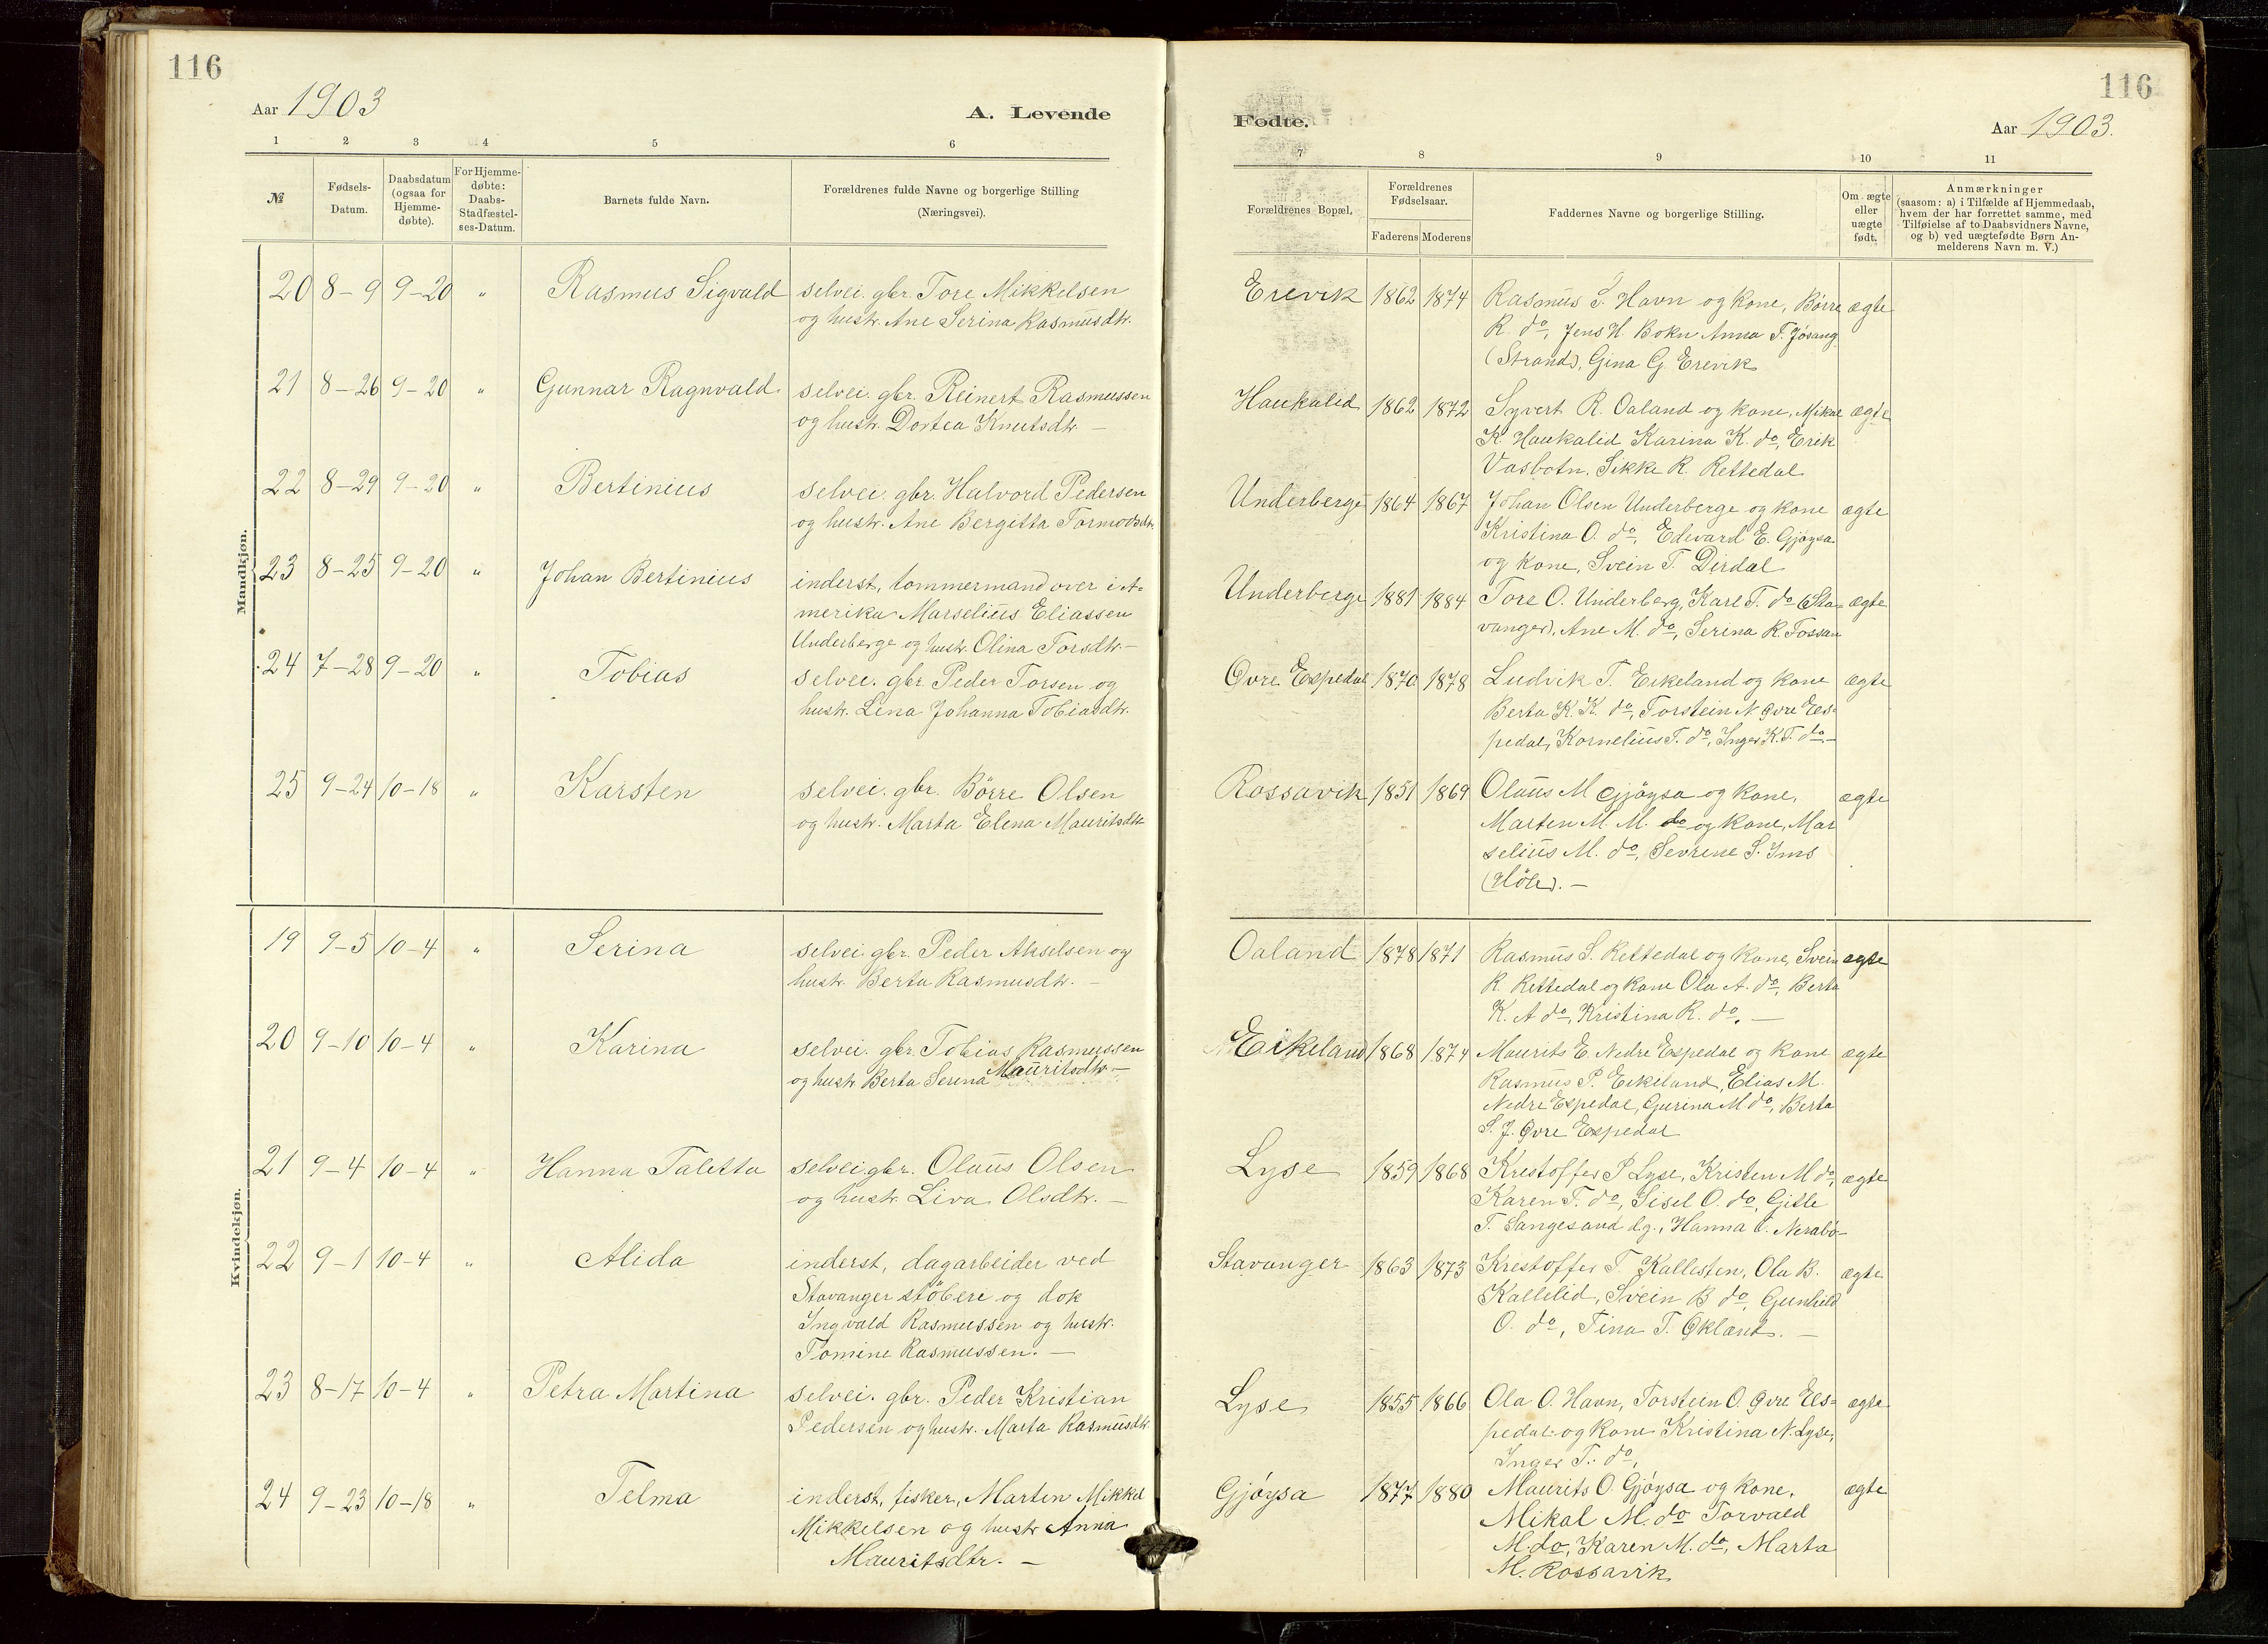 116
Aar 1903
A. Levende
1 2 3 4 5 6
№
Fødsels-Datum.
Daabsdatum (ogsaa for Hjemme-døbte).
For Hjemme-døbte: Daabs-Stadfæstel-ses-Datum.
Barnets fulde Navn.
Forældrenes fulde Navne og borgerlige Stilling
(Næringsvei).
Mandkjøn.
20 8-9 9-20 " Rasmus Sigvald selvei. gbr. Tore Mikkelsen
og hustr. Ane Serina Rasmusdtr.
21 8-26 9-20 " Gunnar Ragnvald selvei. gbr. Reinert Rasmussen
og hustr. Dortea Knutsdtr. —
22 8-29 9-20 " Bertinius selvei. gbr. Halvord Pedersen
og hustr. Ane Bergitta Tormodsdtr.
23 8-25 9-20 " Johan Bertinius inderst, tømmermand over i A-
merika Marselius Eliassen
Underberge og hustr. Olina Torsdtr. —
24 7-28 9-20 " Tobias selvei. gbr. Peder Torsen og
hustr. Lena Johanna Tobiasdtr.
25 9-24 10-18 " Karsten selvei. gbr. Börre Olsen
og hustr. Marta Elena Mauritsdtr.
Kvindekjøn.
19 9-5 10-4 " Serina selvei. gbr. Peder Akselsen og
hustr. Berta Rasmusdtr. —
20 9-10 10-4 " Karina selvei. gbr. Tobias Rasmussen
og hustr. Berta Serina Mauritsdtr. —
21 9-4 10-4 " Hanna Taletta selvei. gbr. Olaus Olsen
og hustr. Liva Olsdtr. —
22 9-1 10-4 " Alida inderst, dagarbeider ved
Stavanger stöberi og dok
Ingvald Rasmussen og hustr.
Tomine Rasmussen. —
23 8-17 10-4 " Petra Martina selvei. gbr. Peder Kristian
Pedersen og hustr. Marta Rasmusdtr.
24 9-23 10-18 " Telma inderst, fisker, Marten Mikkel
Mikkelsen og hustr Anna
Mauritsdtr. —
116
Fødte.
Aar 1903.
7 8 9 10 11
Forældrenes Bopæl.
Forældrenes Fødselsaar.
Faderens Moderens
Faddernes Navne og borgerlige Stilling.
Om ægte eller uægte født.
Anmærkninger
(saasom: a) i Tilfælde af Hjemmedaab,
hvem der har forrettet samme, med
Tilføielse af to Daabsvidners Navne,
og b) ved uægtefødte Børn An-
melderens Navn m. V.)
Erevik 1862 1874 Rasmus S. Havn og kone, Börre ægte
R. do, Jens H. Bokn Anna T. Jösang
(Strand), Gina G. Erevik
Haukalid 1862 1872 Syvert R. Oaland og kone, Mikal ægte
K. Haukalid Karina K. do, Erik
Vasbotn, Sikke R. Rettedal
Underberge 1864 1867 Johan Olsen Underberge og kone ægte
Kristina O. do, Edvard E. Gjöysa
og kone, Svein T. Dirdal
Underberge 1881 1884 Tore O. Underberg, Karl T. do (Sta- ægte
vanger), Ane M. do, Serina R. Fossan
Øvre Espedal 1870 1878 Ludvik T. Eikeland og kone ægte
Berta K. K. do, Torstein N. Øvre Es-
pedal, Kornelius T. do, Inger K. T. do. —
Rossavik 1851 1869 Olaus M Gjöysa og kone, ægte
Marten M. M. do og kone, Mar
selius M. do, Sevrene S. Ims
(Höle). —
Oaland 1878 1871 Rasmus S. Rettedal og kone, Svein ægte
R. Rettedal og kone Ola A. do, Berta
K. A do, Kristina R. do. —
Eikeland 1868 1874 Maurits E. Nedre Espedal og kone ægte
Rasmus P. Eikeland, Elias M.
Nedre Espedal, Gurina M do, Berta
S. J. Øvre Espedal
Lyse 1859 1868 Krestoffer P Lyse, Kristen M do, ægte
Karen T. do, Sisel O. do, Gitle
T. Sangesand d.y., Hanna O. Nerabö-
Stavanger 1863 1873 Krestoffer T. Kallesten, Ola B. ægte
Kallelid, Svein B do, Gunhild
O. do, Tina T. Økland. —
Lyse 1855 1866 Ola O. Havn, Torstein O. Øvre Es- ægte
pedal og kone Kristina N. Lyse,
Inger T. do,
Gjöysa 1877 1880 Maurits O. Gjöysa og kone, ægte
Mikal M. do Torvald
M. do, Karen M. do, Marta
M. Rossavik